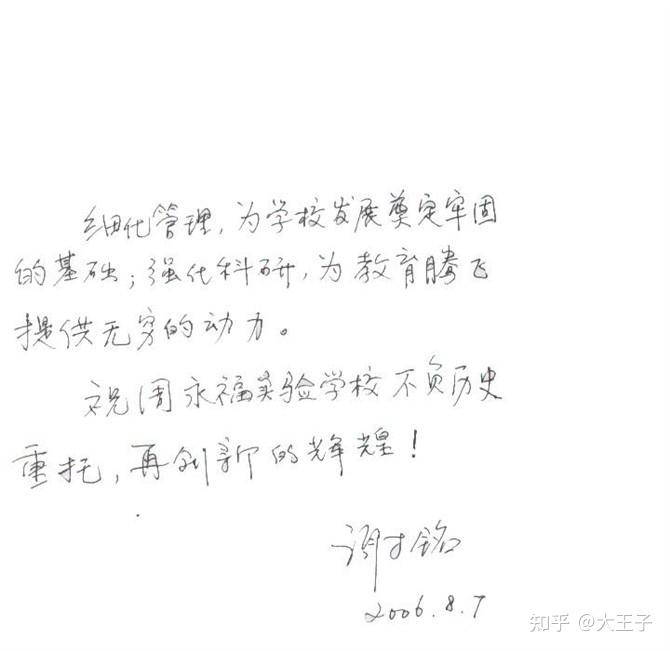 细化管理，为学校发展奠定牢固
的基础；强化科研，为教育腾飞
提供无穷的动力。
祝周永福实验学校不负历史
重托，再创新的辉煌！
谢才铭
2006.8.7
知乎 @大王子